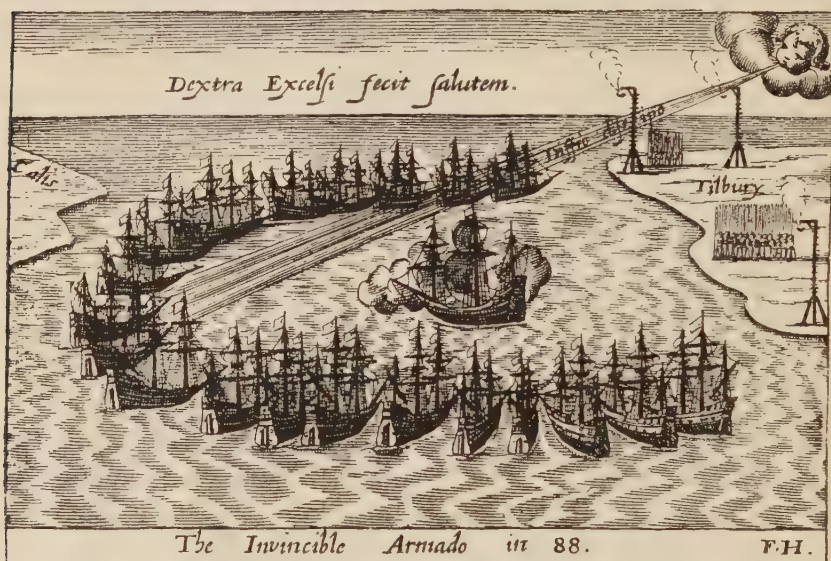 Dextra Excelsi fecit salutem.
Calis
Tilbury
The Invincible Armado in 88.
F.H.